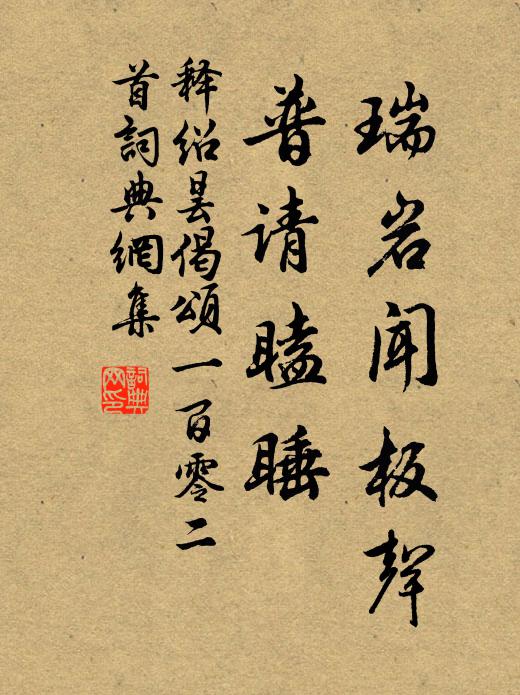 瑞岩闻板聲
普请瞌睡
释绍昙偈頌一百零二
首詞典網集
詞典
网印